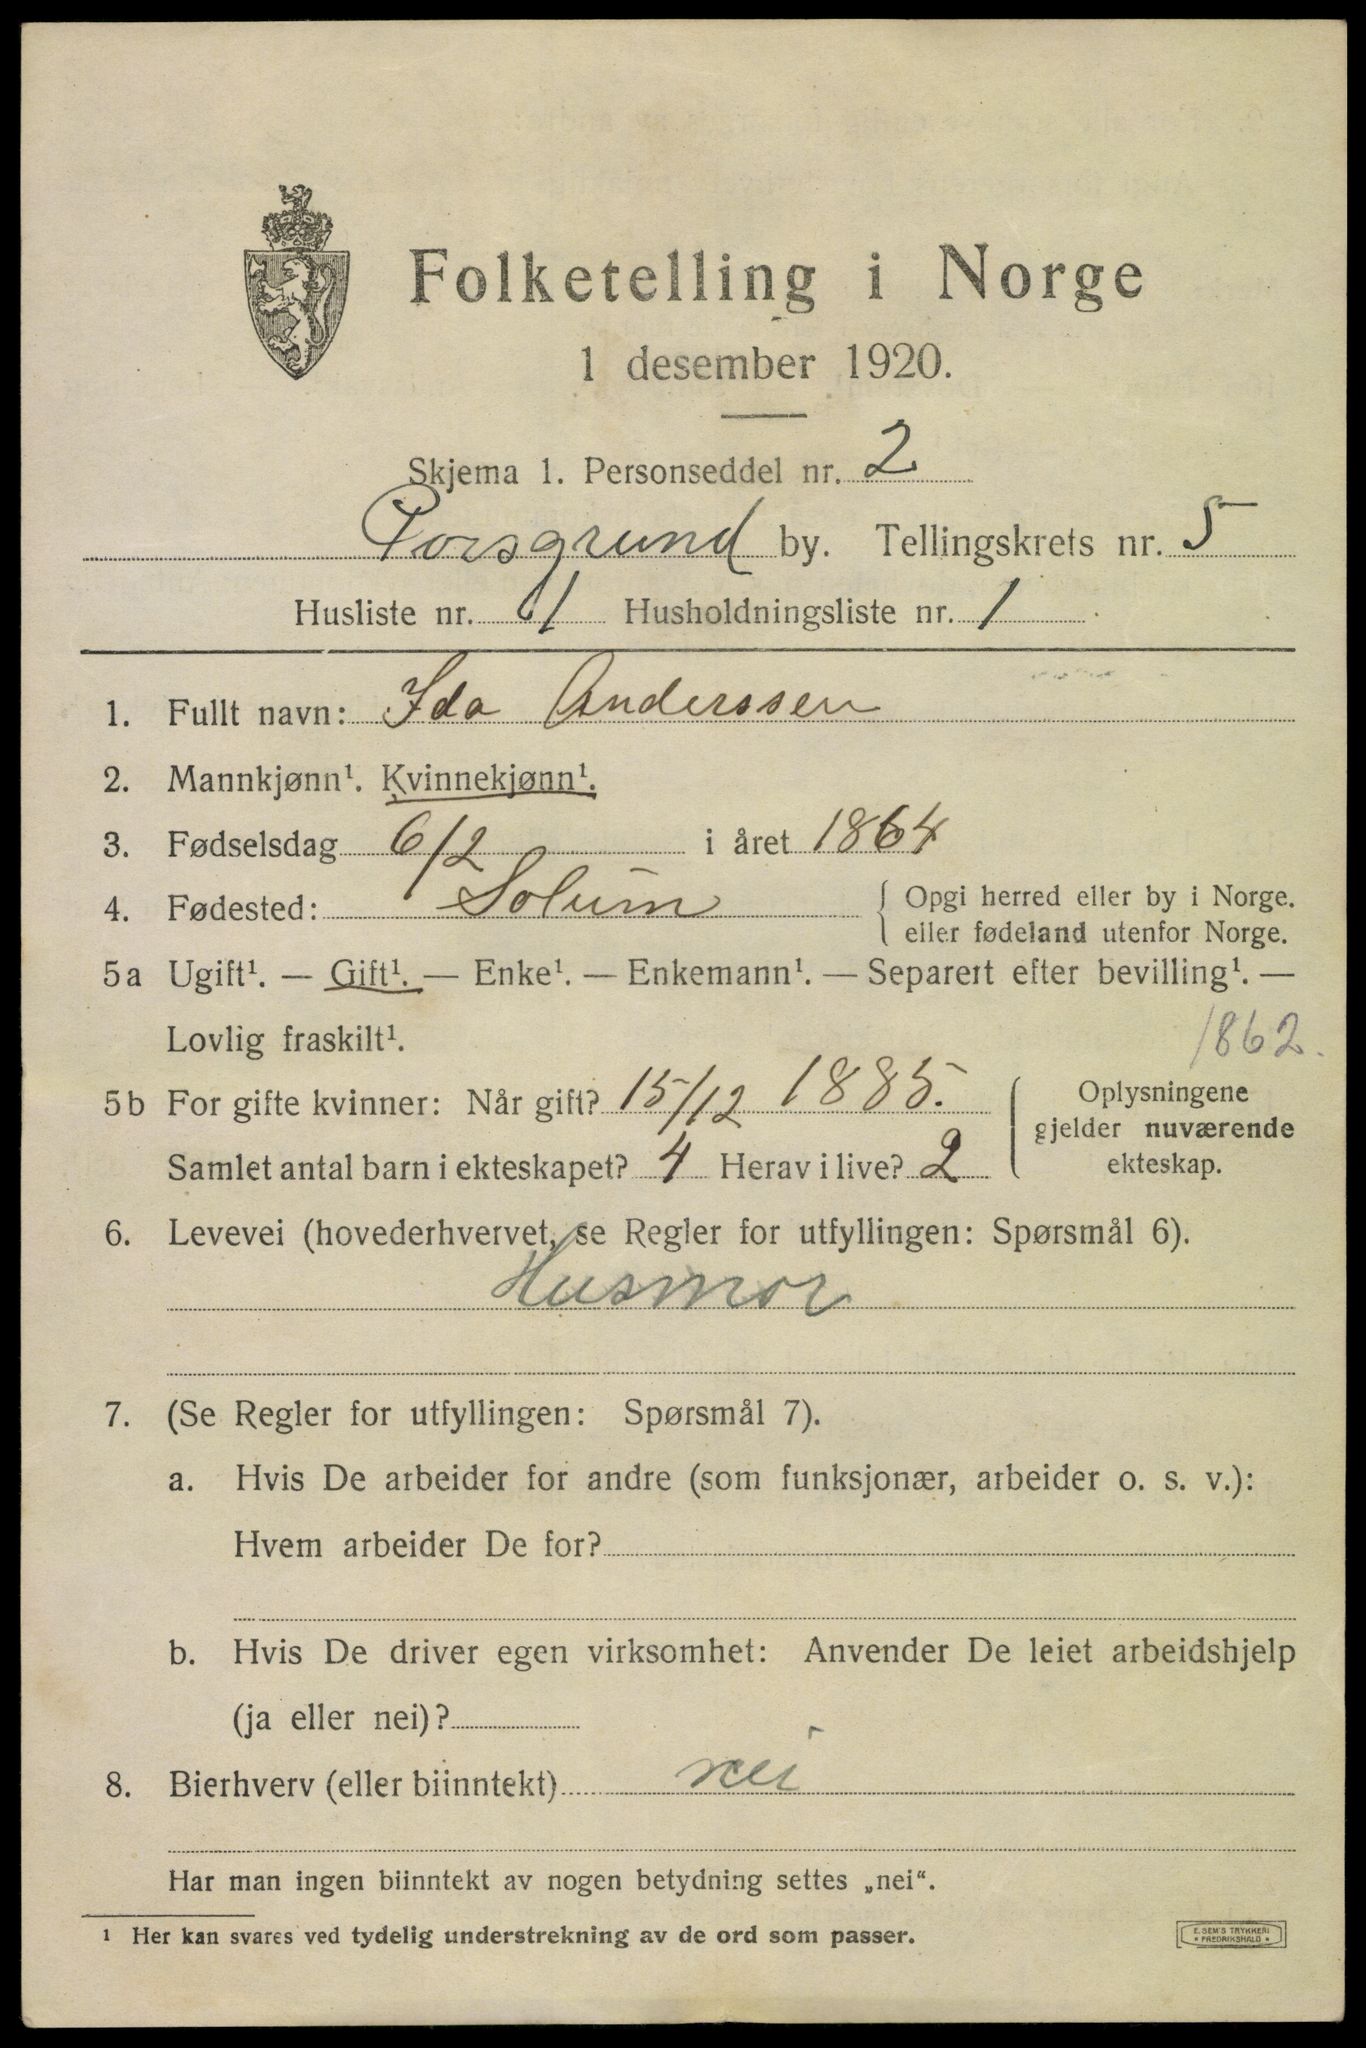 Folketelling i Norge
1 desember 1920.
Skjema 1. Personseddel nr. 2
Porsgrund by. Tellingskrets nr. 5
Husliste nr. 1 Husholdningsliste nr. 1
1. Fullt navn: Ida Anderssen
2. Mannkjønn¹. Kvinnekjønn¹.
3. Fødselsdag 6/2 i året 1864
4. Fødested: Solum { Opgi herred eller by i Norge.
eller fødeland utenfor Norge.
5a Ugift¹. — Gift¹. — Enke¹. — Enkemann¹. — Separert efter bevilling¹. —
Lovlig fraskilt¹.
1862.
5b For gifte kvinner: Når gift? 15/12 1885. Oplysningene
gjelder nuværende
Samlet antal barn i ekteskapet? 4 Herav i live? 2 ekteskap.
6. Levevei (hovederhvervet, se Regler for utfyllingen: Spørsmål 6).
Husmor
7. (Se Regler for utfyllingen: Spørsmål 7).
a. Hvis De arbeider for andre (som funksjonær, arbeider o. s. v.):
Hvem arbeider De for?
b. Hvis De driver egen virksomhet: Anvender De leiet arbeidshjelp
(ja eller nei)?
8. Bierhverv (eller biinntekt) nei
Har man ingen biinntekt av nogen betydning settes „nei“.
¹ Her kan svares ved tydelig understrekning av de ord som passer.
E. SEM'S TRYKKERI
* FREDRIKSHALD *